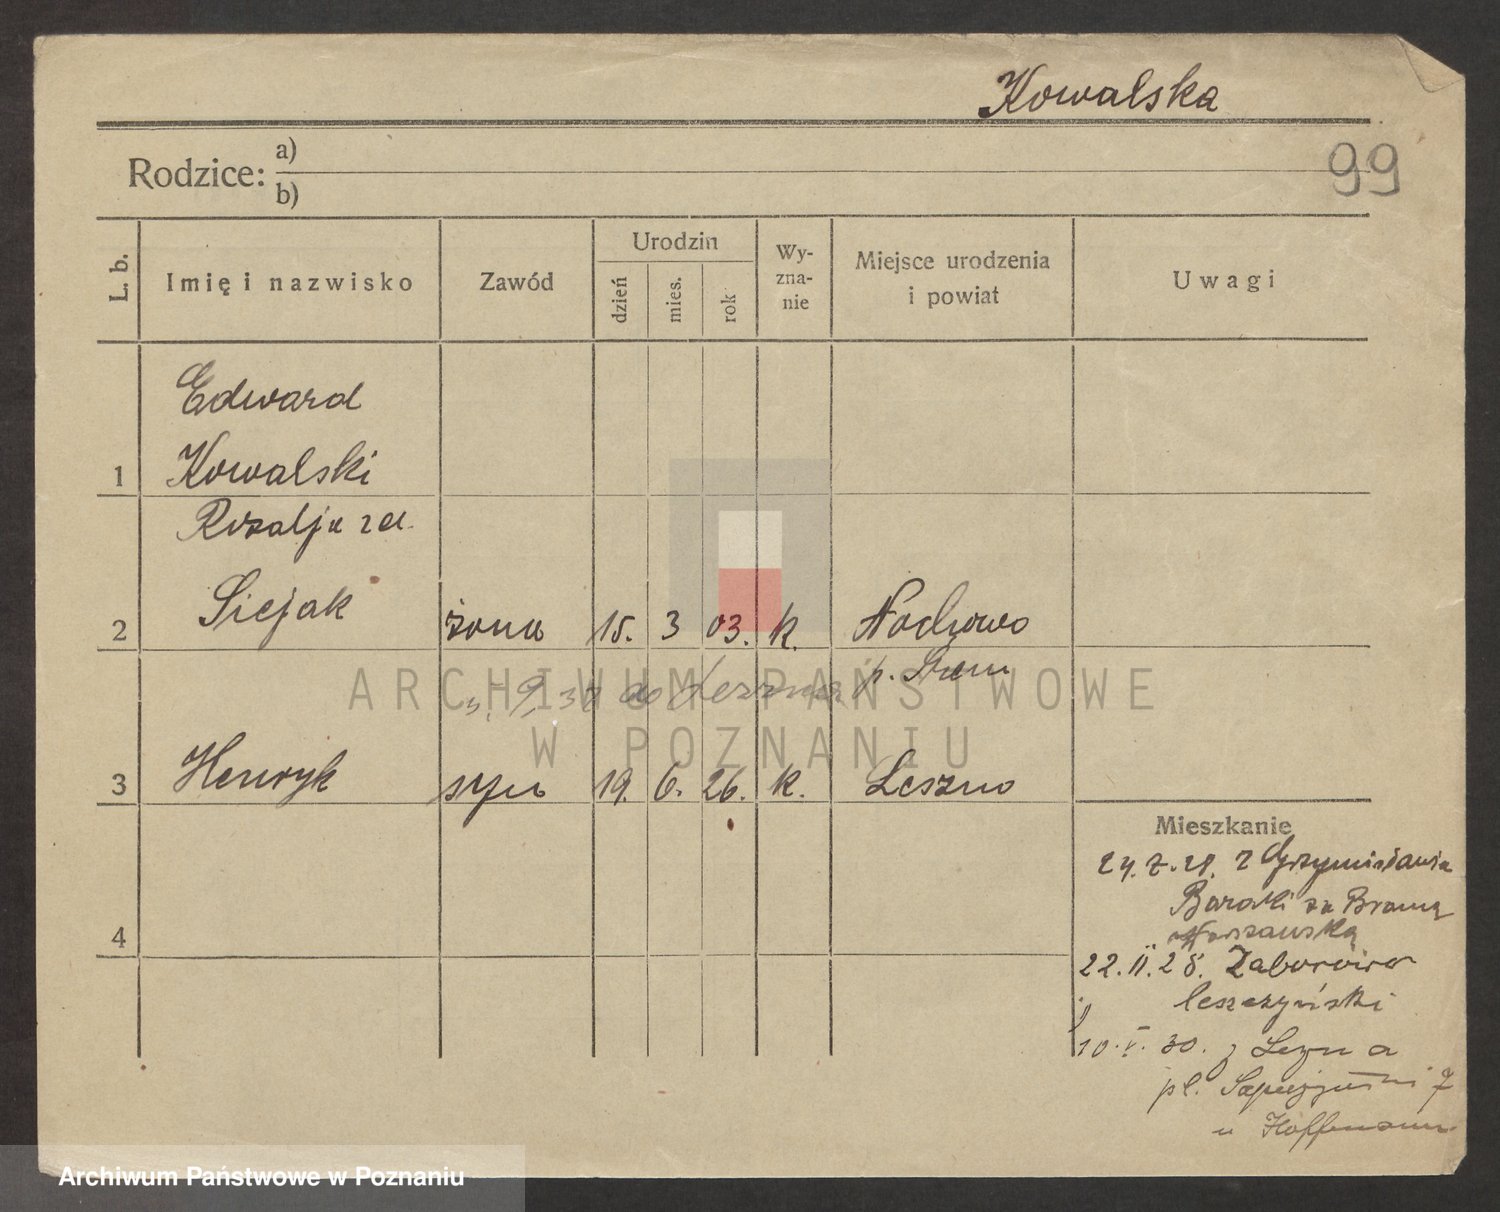 Kowalska
99
Rodzice: a)
b)
L. b.
Imię i nazwisko
Zawód
Urodzin
dzień
mies.
rok
Wy-
zna-
nie
Miejsce urodzenia
i powiat
Uwagi
Edward
1 Kowalski
Rozalja z d.
2 Siejak żona 15. 3 03. k. Nochowo
p. Śrem
9. do Leszna
3 Henryk syn 19. 6. 26. k. Leszno
Mieszkanie
24. 7. 28. z Grzymisławia
Baraki za Bramą
Warszawską
4
22. II. 28. Zaborowo
leszczyński
10. V. 30. z Lezna
pl. 7
u Hoffmann
ARCHIWUM PAŃSTWOWE
W POZNANIU
Archiwum Państwowe w Poznaniu